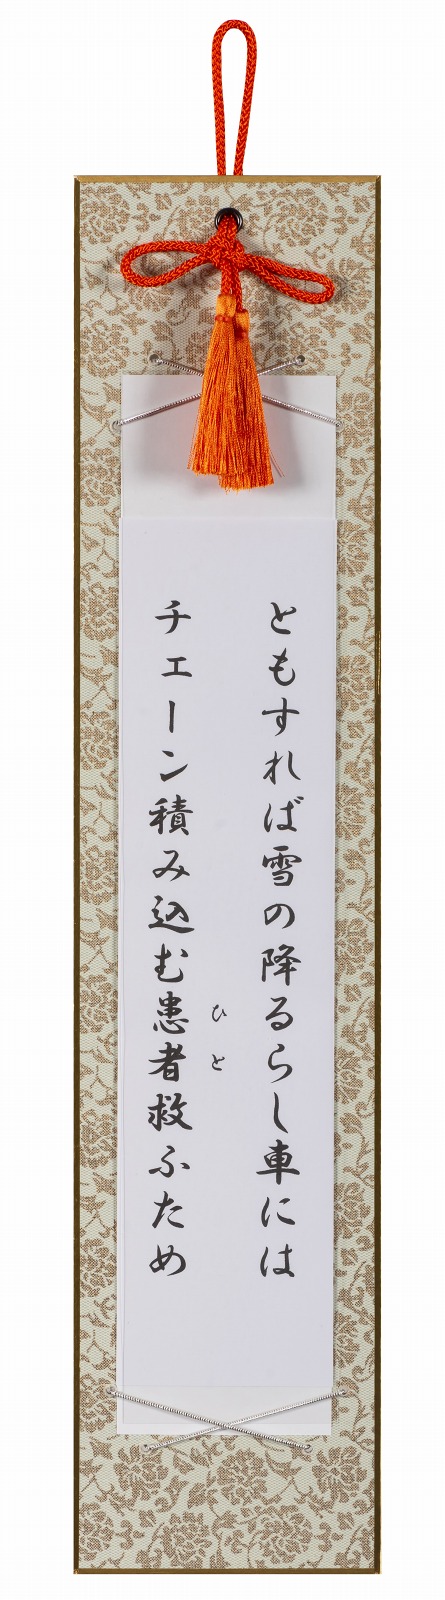 ともすれば雪の降るらし車には
チェーン積み込む患者救ふため
ひと